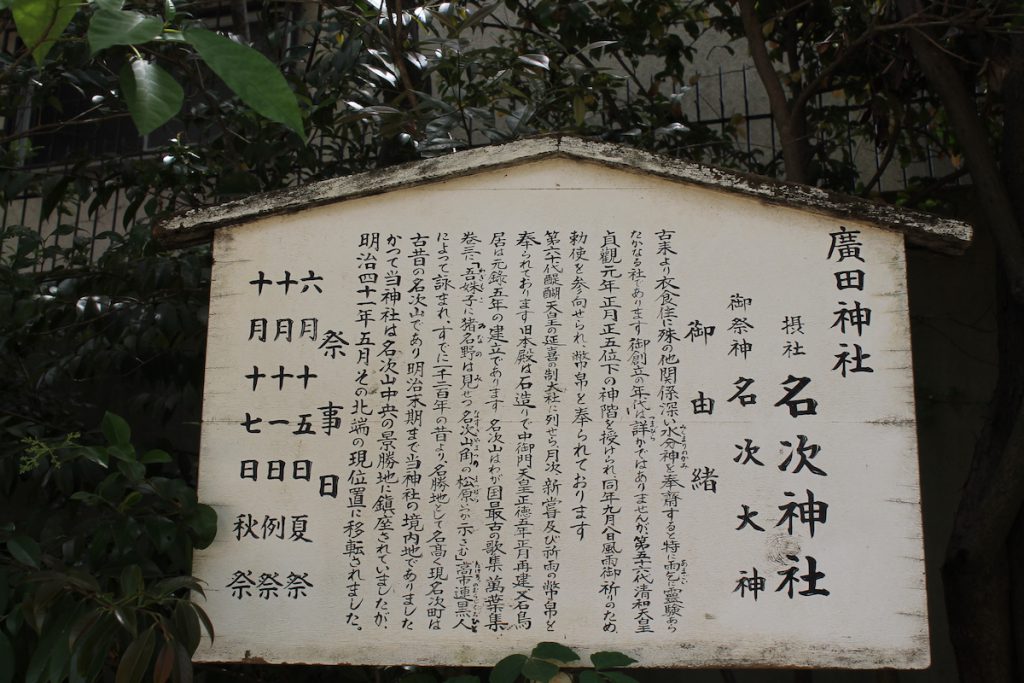 廣田神社
摂社 名次神社
御祭神 名次大神
御由緒
古来より衣食住に殊の他関係深い水分神を奉齋すると特に雨乞に霊験あら
たかなる社であります御創立の年代は詳かではありませんが、第五十六代清和天皇
貞觀元年正月正五位下の神階を授けられ、同年九月八日風雨御祈のため、
勅使を参向せられ、幣帛を奉られております
第六十代醍醐天皇の延喜の制大社に列せら月次、新嘗及び祈雨の幣帛を
奉られております旧本殿は石造りで中御門天皇正徳五年正月再建又石鳥
居は元録五年の建立であります 名次山はわが国最古の歌集 萬葉集
巻三に「吾妹子に猪名野は見せつ名次山角の松原いつか示さむ」高市連黒人
によって詠まれ、すでに一千二百年の昔より名勝地として名高く現名次町は
古昔の名次山であり明治末期まで当神社の境内地でありました
かつて当神社は名次山中央の景勝地に鎮座されていましたが、
明治四十一年五月その北端の現位置に移転されました。
祭事日
六月十五日 夏祭
十月十一日 例祭
十月十七日 秋祭